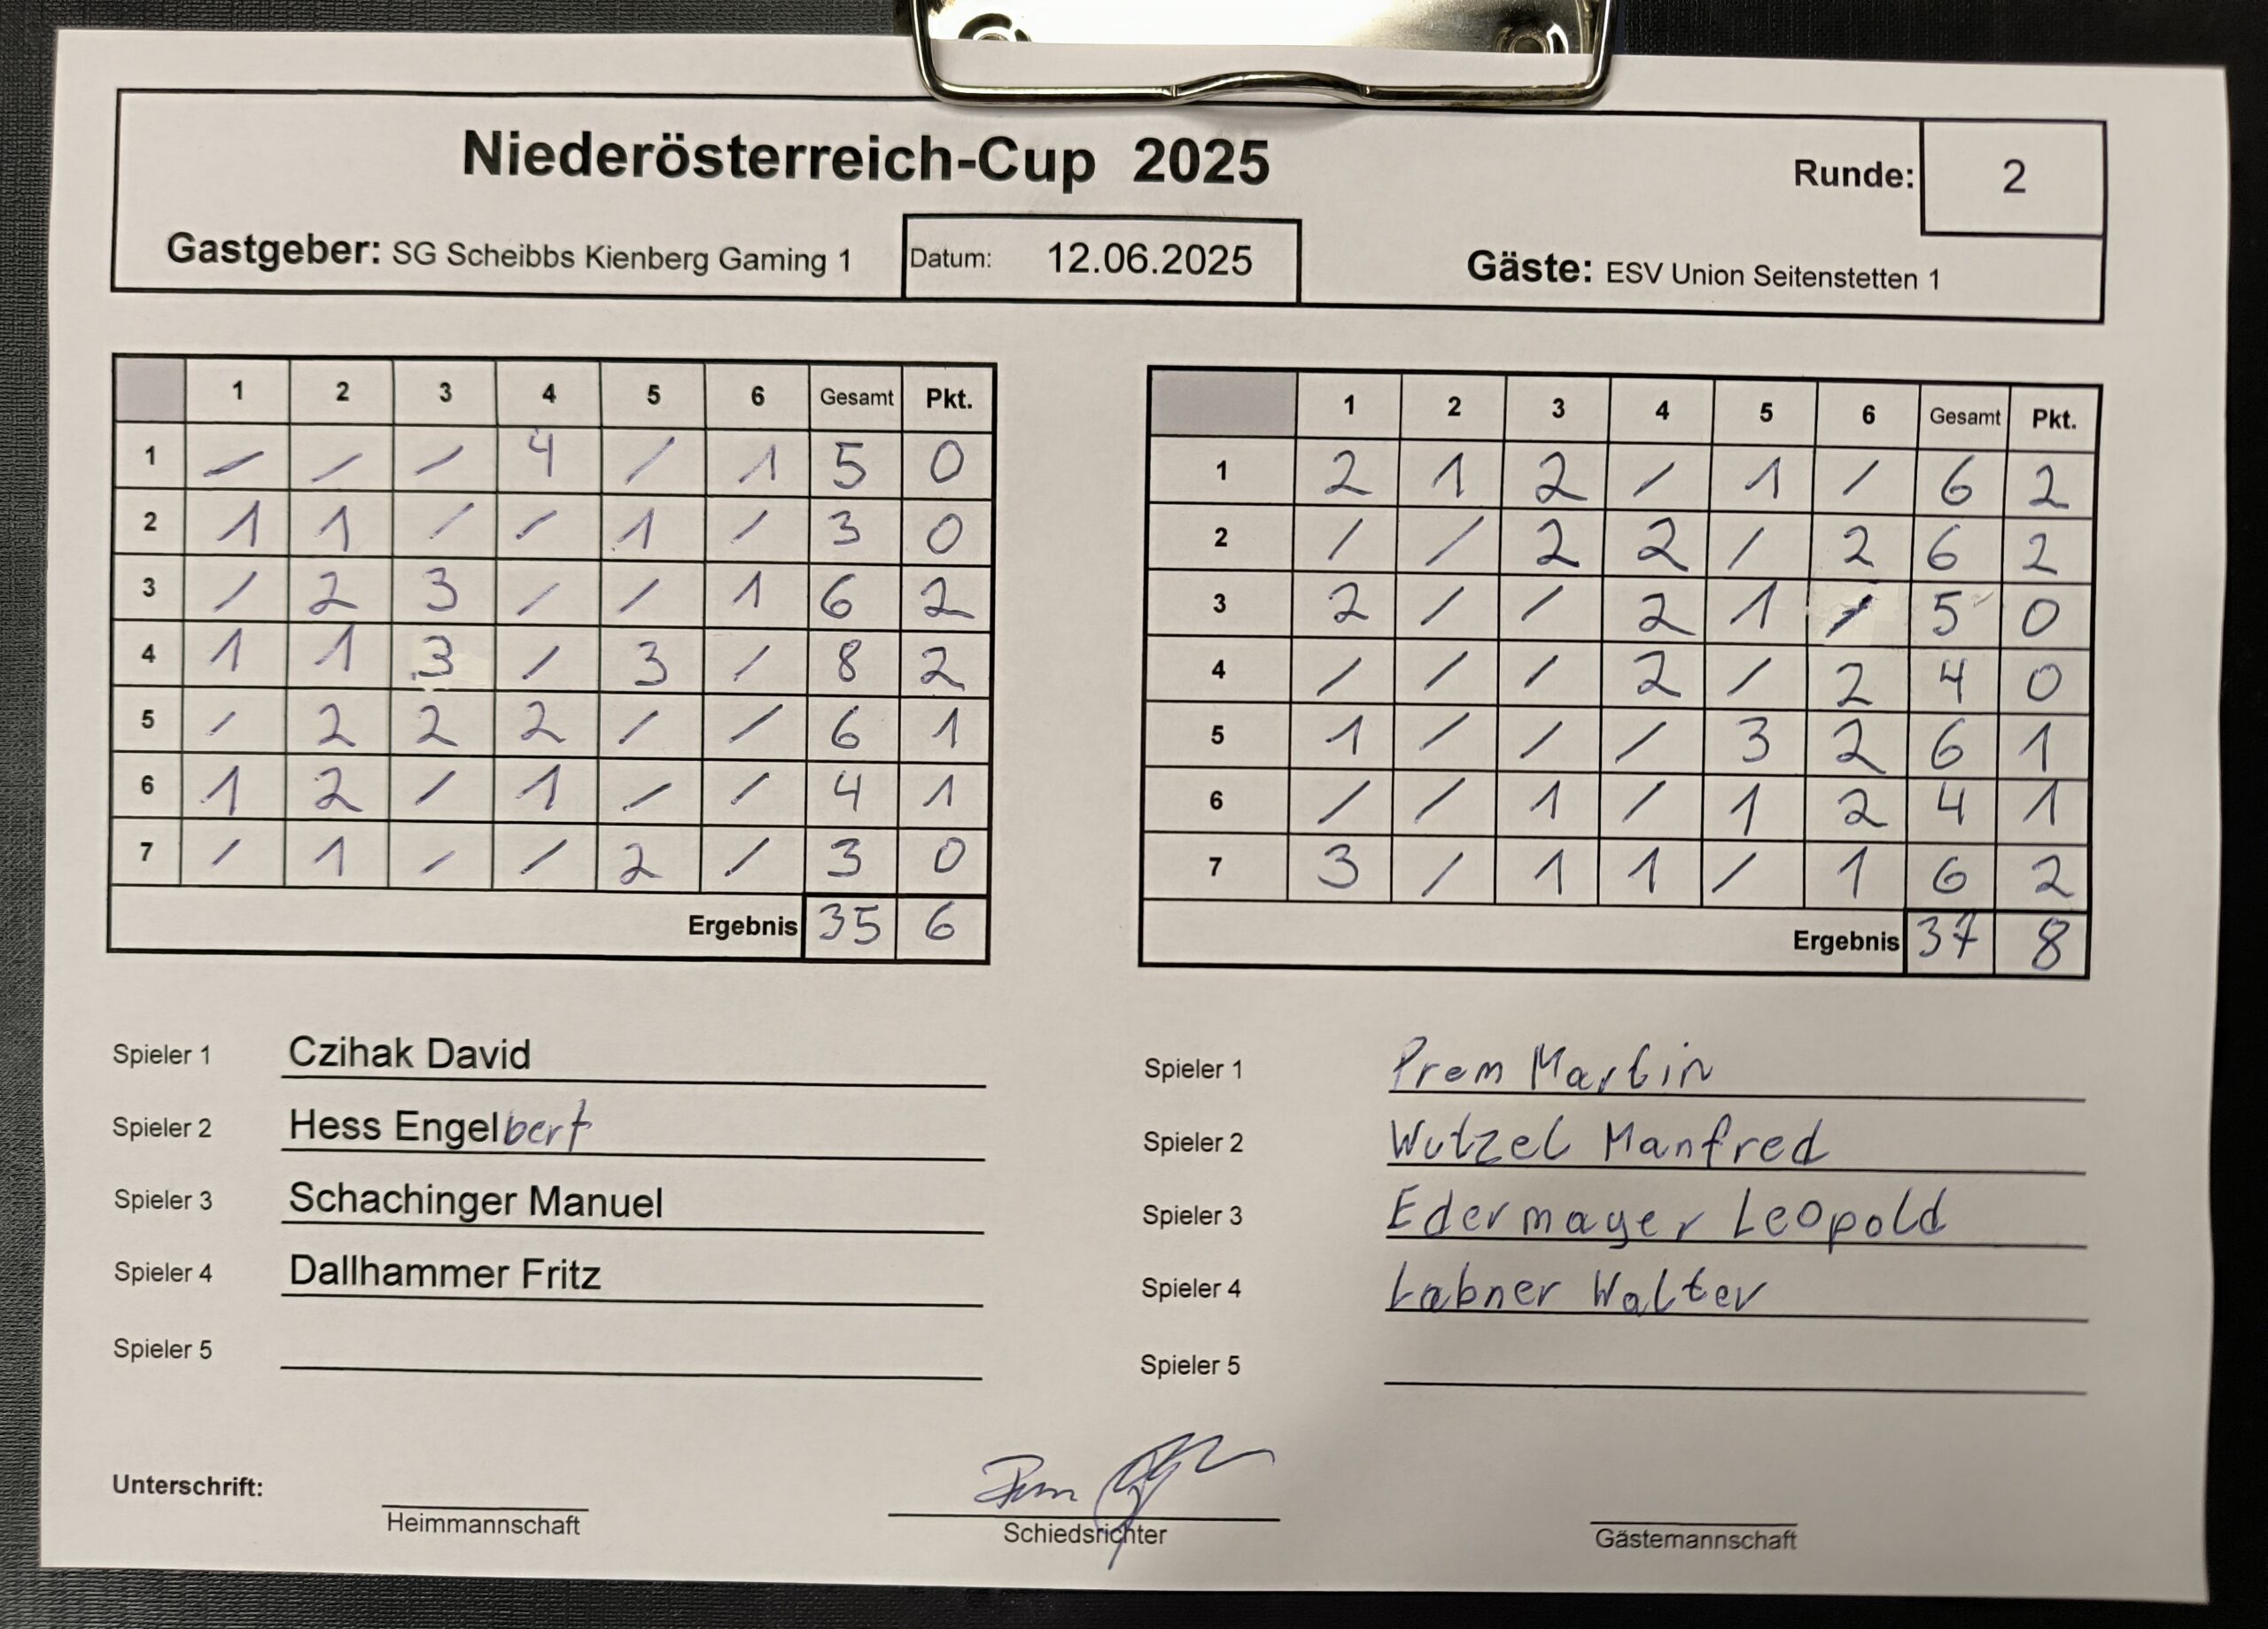 Niederösterreich-Cup 2025
Runde: 2
Gastgeber: SG Scheibbs Kienberg Gaming 1
Datum: 12.06.2025
Gäste: ESV Union Seitenstetten 1
1 2 3 4 5 6 Gesamt Pkt.
1 / / / 4 / 1 5 0
2 1 1 / / 1 / 3 0
3 / 2 3 / / 1 6 2
4 1 1 3 / 3 / 8 2
5 / 2 2 2 / / 6 1
6 1 2 / 1 / / 4 1
7 / 1 / / 2 / 3 0
Ergebnis 35 6
1 2 3 4 5 6 Gesamt Pkt.
1 2 1 2 / 1 / 6 2
2 / / 2 2 / 2 6 2
3 2 / / 2 1 / 5 0
4 / / / 2 / 2 4 0
5 1 / / / 3 2 6 1
6 / / 1 / 1 2 4 1
7 3 / 1 1 / 1 6 2
Ergebnis 37 8
Spieler 1 Czihak David
Spieler 2 Hess Engelbert
Spieler 3 Schachinger Manuel
Spieler 4 Dallhammer Fritz
Spieler 5
Spieler 1 Prem Martin
Spieler 2 Wutzel Manfred
Spieler 3 Edermayer Leopold
Spieler 4 Labner Walter
Spieler 5
Unterschrift:
Heimmannschaft
Schiedsrichter
Gästemannschaft